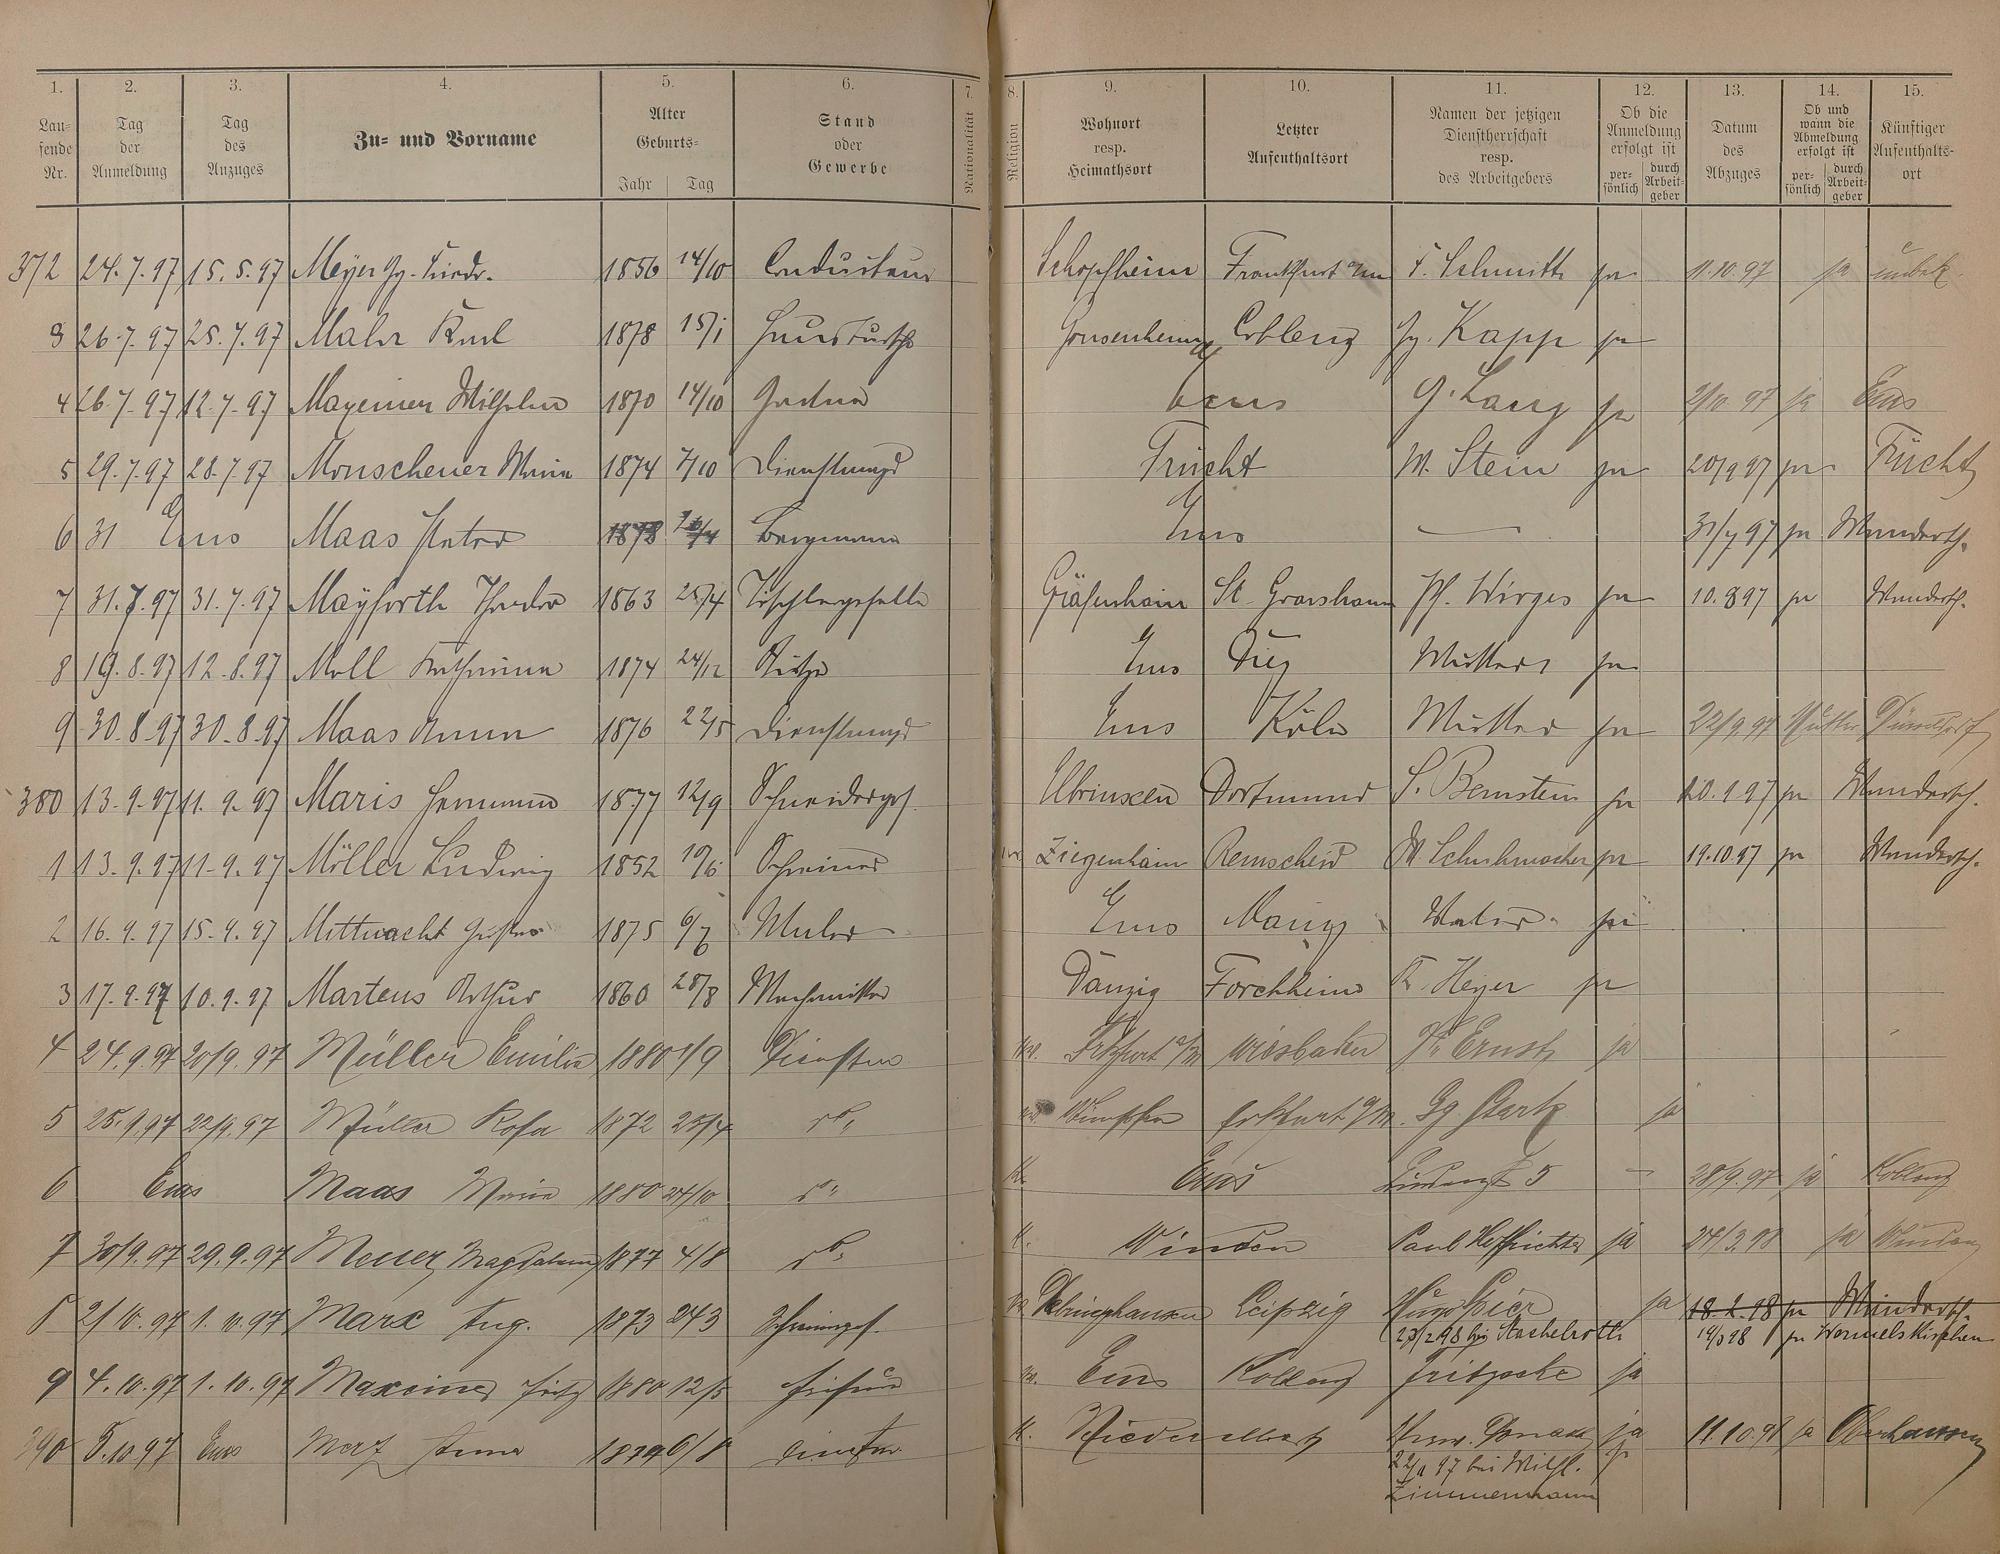 1. 2. 3. 4. 5. 6. 7. 8. 9. 10. 11. 12. 13. 14. 15.
Lau-
fende
Nr.
Tag
der
Anmeldung
Tag
des
Anzuges
Zu- und Vorname
Alter
Geburts-
Jahr Tag
Stand
oder
Gewerbe
Nationalität
Religion
Wohnort
resp.
Heimathsort
Letzter
Aufenthaltsort
Namen der jetzigen
Dienstherrschaft
resp.
des Arbeitgebers
Ob die
Anmeldung
erfolgt ist
per-
sönlich
durch
Arbeit-
geber
Datum
des
Abzuges
Ob und
wann die
Abmeldung
erfolgt ist
per-
sönlich
durch
Arbeit-
geber
Künftiger
Aufenthalts-
ort
372 24.7.97 15.5.97 Meyer Gg. Friedr. 1856 14/10 Conducteur Schopfheim Frankfurt a/m F. Schmitt ja 11.10.97 ja unbek.
3 26.7.97 25.7.97 Mahr Karl 1878 15/1 Hausbursche Gonsenheim Coblenz Gg. Kapp ja
4 26.7.97 12.7.97 Mayeiner Wilhelm 1870 14/10 Ems G. Lang ja 2/10 97 ja Ems
5 29.7.97 28.7.97 Monschener Maria 1874 7/10 Dienstmagd Frücht M. Stein ja 20/9 97 ja Frücht
6 31 Ems Maas Peter 1878 Bergmann Ems — 31/7 97 ja Wandersch.
7 31.7.97 31.7.97 Mayforth Theodor 1863 25/4 Tischlergeselle Gräfenhain St. Goarshausen Ph. Wirges ja 10.8 97 ja Wandersch.
8 19.8.97 12.8.97 Moll Katharina 1874 24/12 Stütze Ems Diez Mutter ja
9 30.8.97 30.8.97 Maas Anna 1876 22/5 Dienstmagd Ems Köln Mutter ja 22/9 97 Mutter Düsseldorf
380 13.9.97 11.9.97 Maris Hermann 1877 12/9 Schneiderges. Dortmund S. Bernstein ja 20.9.97 ja Wandersch.
1 13.9.97 11.9.97 Möller Ludwig 1852 10/6 Schreiner Ziegenhain Remscheid W. Schuhmacher ja 19.10.97 ja Wandersch.
2 16.9.97 15.9.97 Mittnacht Gustav 1875 6/7 Maler Ems Mainz Vater ja
3 17.9.97 10.9.97 Martens Arthur 1860 28/8 Mechaniker Danzig Forchheim K. Heyer ja
4 24.9.97 20/9.97 Müller Emilie 1880 1/9 Frkfurt a/M Wiesbaden Fr. Ernst ja
5 25.9.97 22/9.97 Müller Rosa 1872 25/4 do. Wimpfen Frkfurt a/M. Gg. Stark ja
6 Ems Maas Maria 1880 24/10 do. K. Ems Lindenst 5 — 28/9.97 ja Koblenz
7 30/9.97 29.9.97 Meuer Magdalena 1877 4/8 do. K. Winden Paul Helfrichter ja 24/3.98 ja Winden
8 2/10.97 1.10.97 Marx Aug. 1873 24 3 Schreinerges. Dabringhausen Leipzig Hugo Geier ja 18.2.98 ja Wandersch.
23/2 98 bei Stachelroth 14/3 98 ja Wermelskirchen
9 4.10.97 1.10.97 Maxeiner Fritz 1880 12/5 Friseur Ems Koblenz Fritzsche ja
390 5.10.97 Ems Merz Anna 1879 6/8 K. Niederelbert Herm. ja 11.10.98 ja Oberhausen
bei Wilh.
Zimmermann